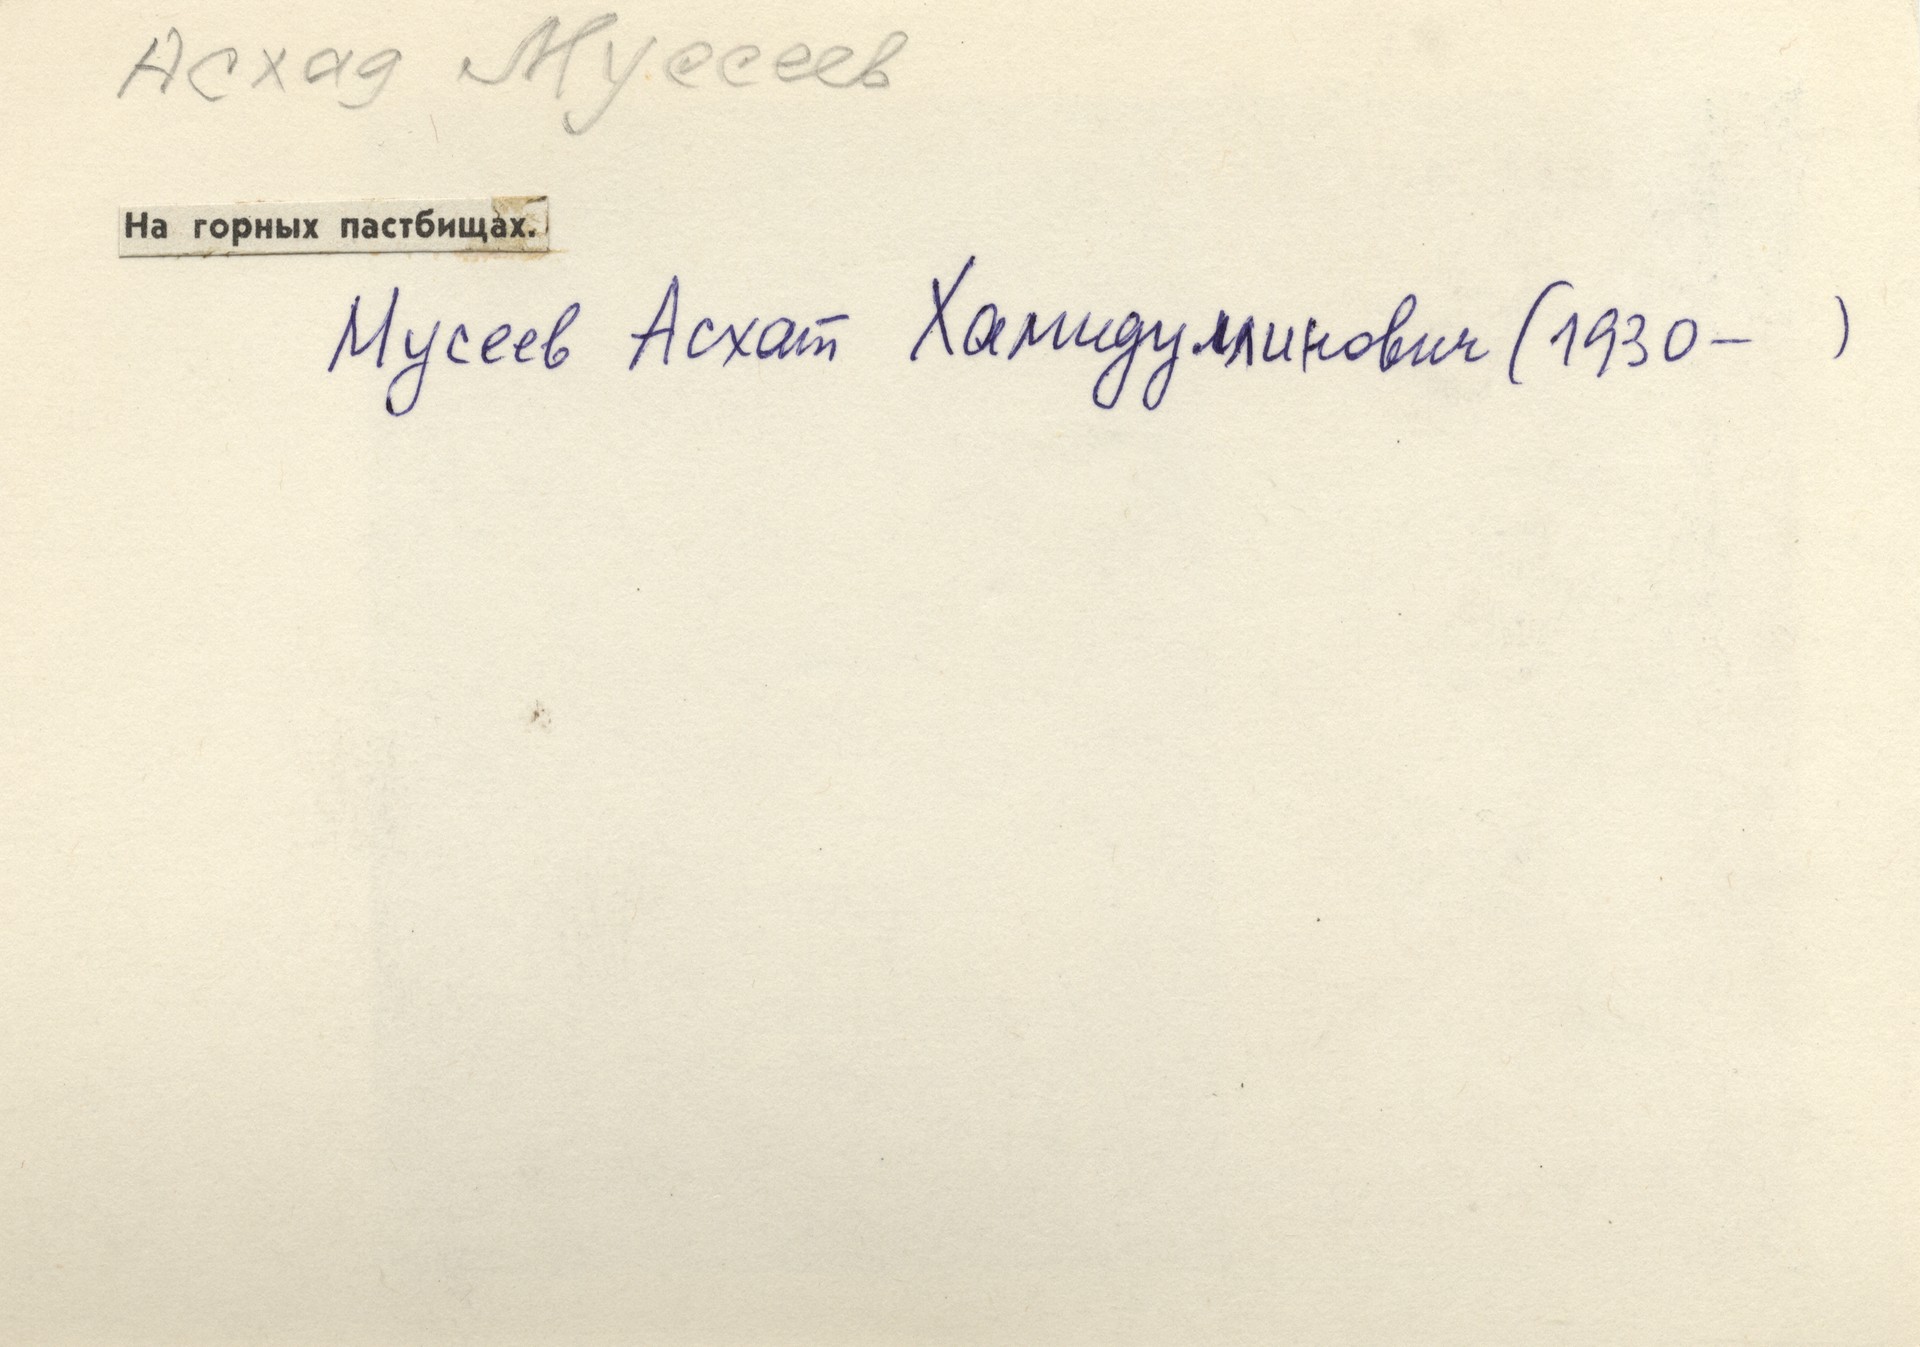 Асхад Муссеев
На горных пастбищах.
Мусеев Асхат Хамидуллинович (1930- )